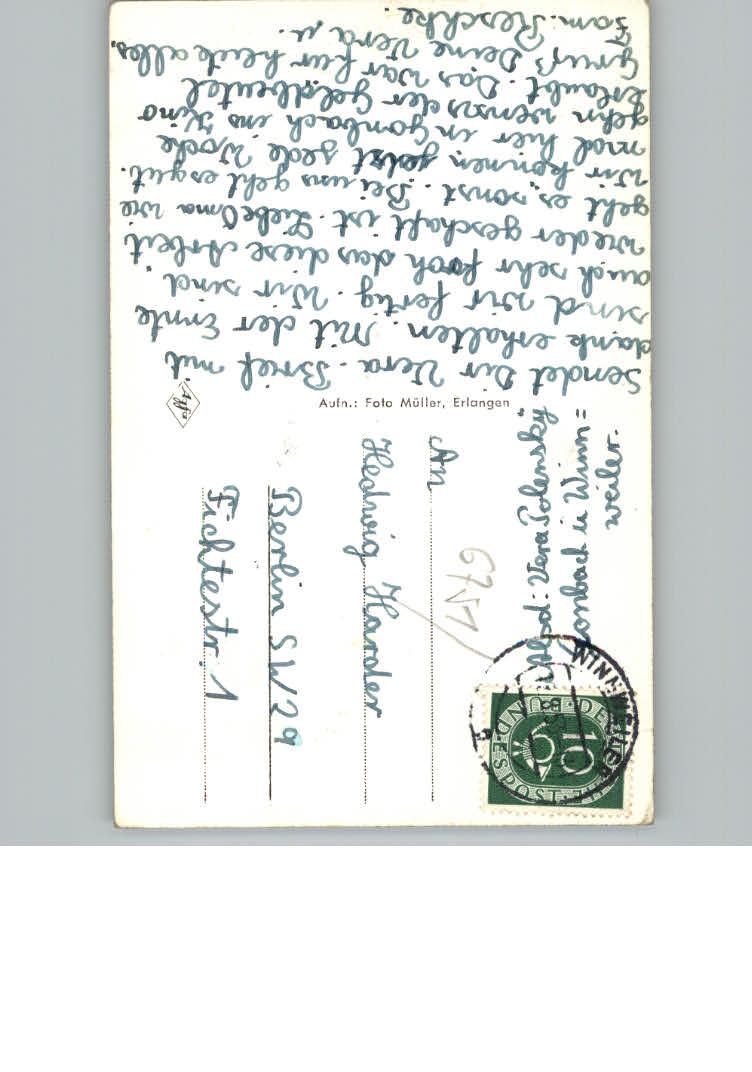 Sendet Dir Vera. Brief mit
dank erhalten. Mit der Ernte
sind wir fertig. Wir sind
auch sehr froh das diese Arbeit
wieder geschaft ist. Liebe Oma wie
geht es sonst. Bei uns geht es gut.
Wir können jede Woche
mal hier in Gonbach ins Kino
gehn wenns der Geldbeutel
erlaubt. Das war für heute alles.
Gruß Deine Vera u.
Fam. Reschke.
Agfa
Aufn.: Foto Müller, Erlangen
Absd: Vera Polensky
Gonbach ü Winn=
weiler.
6751
An
Hedwig Harder
Berlin SW 29
Fichtestr. 1
WINNWEILER
a
DEUTSCHE BUNDESPOST
10